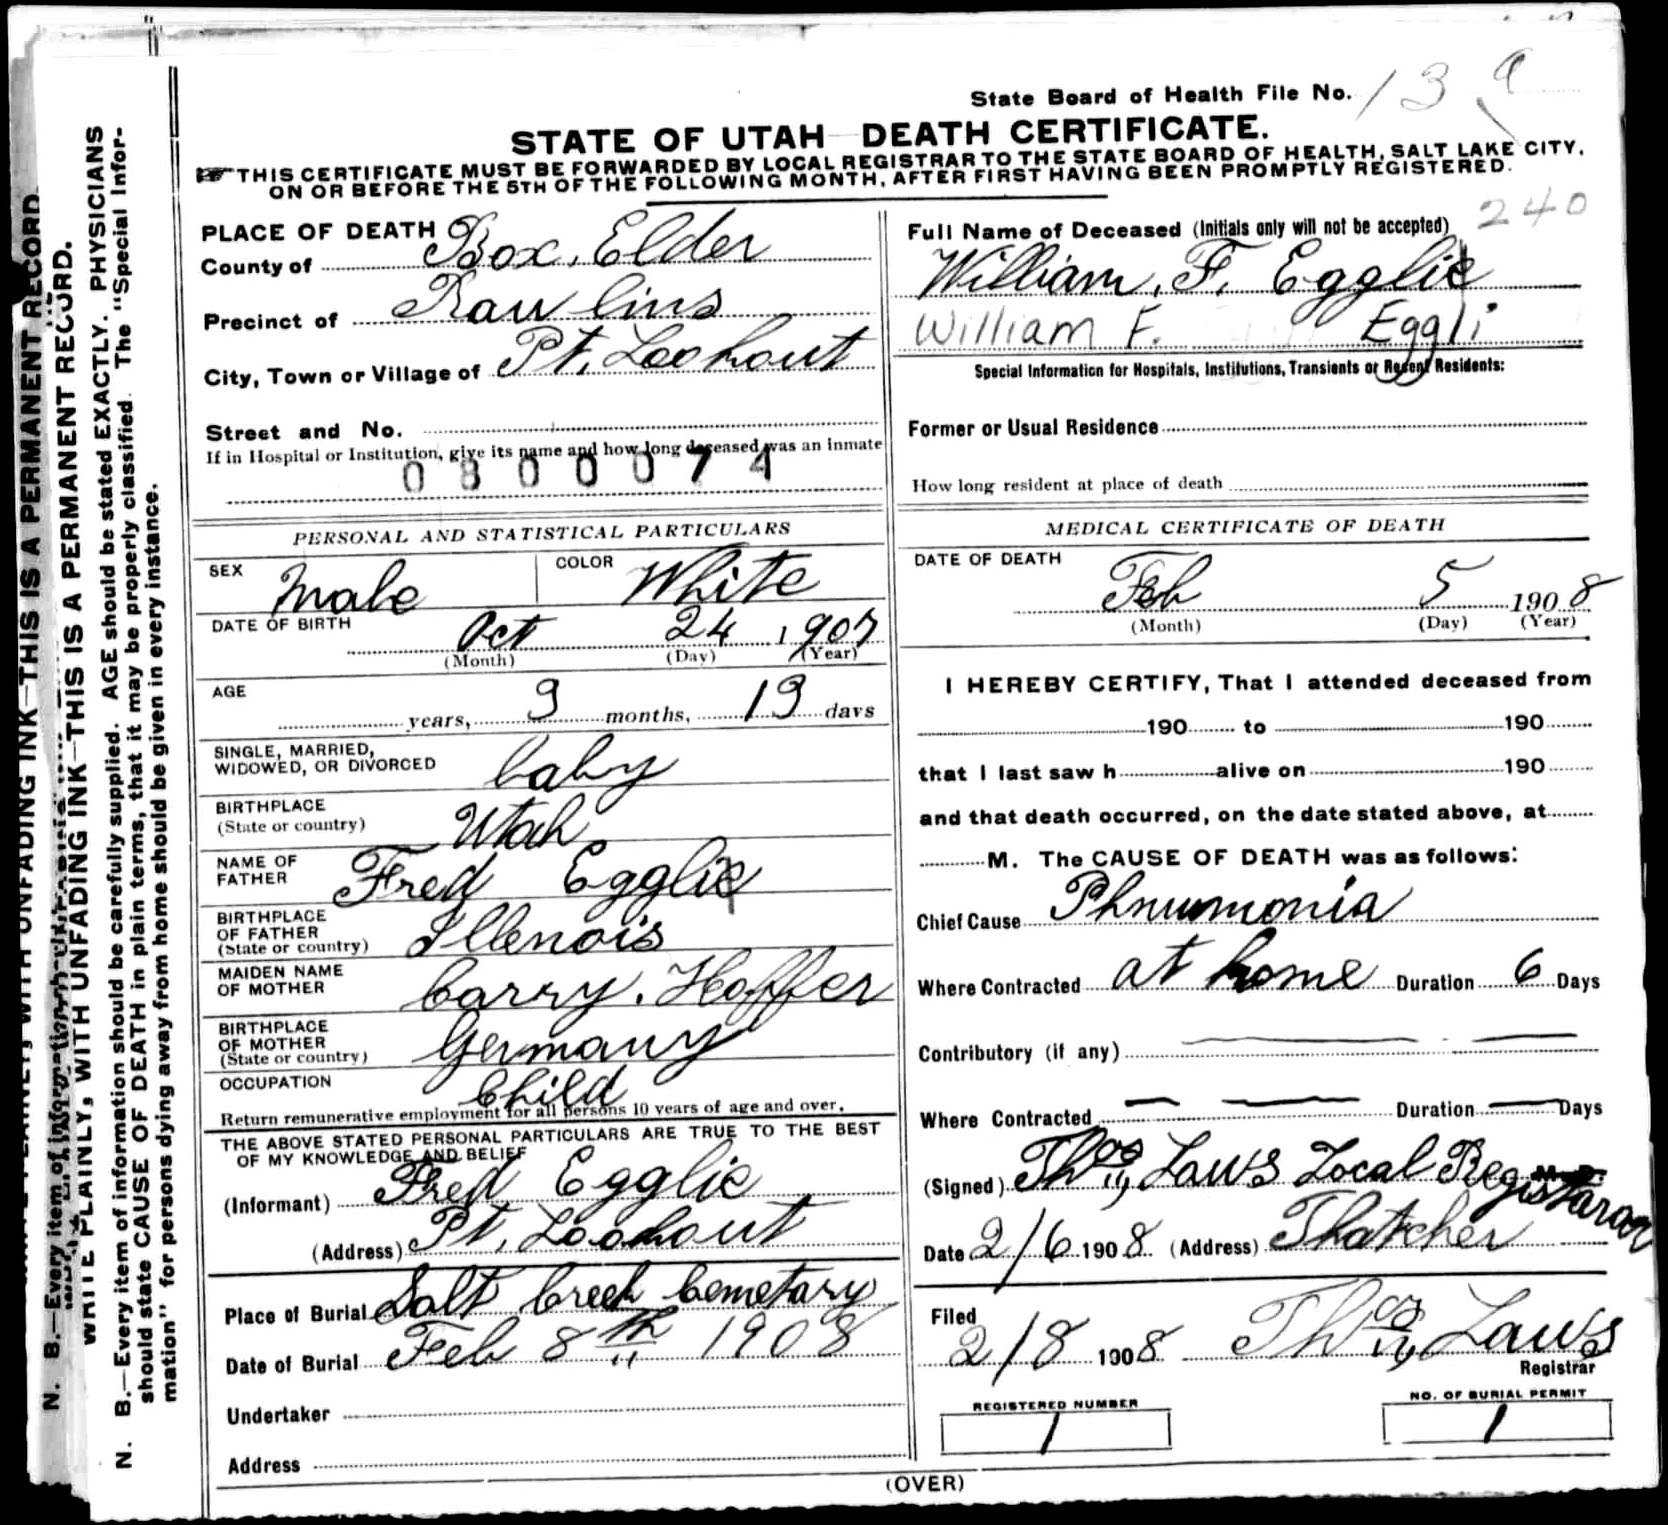 State Board of Health File No. 13
STATE OF UTAH—DEATH CERTIFICATE.
THIS CERTIFICATE MUST BE FORWARDED BY LOCAL REGISTRAR TO THE STATE BOARD OF HEALTH, SALT LAKE CITY,
ON OR BEFORE THE 5TH OF THE FOLLOWING MONTH, AFTER FIRST HAVING BEEN PROMPTLY REGISTERED.
PLACE OF DEATH
County of Box Elder
Precinct of Rawlins
City, Town or Village of Pt. Lookout
Street and No.
If in Hospital or Institution, give its name and how long deceased was an inmate
0800074
PERSONAL AND STATISTICAL PARTICULARS
SEX Male COLOR White
DATE OF BIRTH Oct 24, 1907
(Month) (Day) (Year)
AGE years, 3 months, 13 days
SINGLE, MARRIED,
WIDOWED, OR DIVORCED baby
BIRTHPLACE
(State or country) Utah
NAME OF
FATHER Fred Egglie
BIRTHPLACE
OF FATHER
(State or country) Illenois
MAIDEN NAME
OF MOTHER Carry. Hoffer
BIRTHPLACE
OF MOTHER
(State or country) Germany
OCCUPATION Child
Return remunerative employment for all persons 10 years of age and over.
THE ABOVE STATED PERSONAL PARTICULARS ARE TRUE TO THE BEST
OF MY KNOWLEDGE AND BELIEF
(Informant) Fred Egglie
(Address) Pt. Lookout
Place of Burial Salt Creek Cemetary
Date of Burial Feb 8th 1908
Undertaker
Address
240
Full Name of Deceased (Initials only will not be accepted)
William. F. Egglie
William F. Eggli
Special Information for Hospitals, Institutions, Transients or Recent Residents:
Former or Usual Residence
How long resident at place of death
MEDICAL CERTIFICATE OF DEATH
DATE OF DEATH
Feb 5 1908
(Month) (Day) (Year)
I HEREBY CERTIFY, That I attended deceased from
190 to 190
that I last saw h alive on 190
and that death occurred, on the date stated above, at
M. The CAUSE OF DEATH was as follows:
Chief Cause Phnumonia
Where Contracted at home Duration 6 Days
Contributory (if any)
Where Contracted Duration Days
(Signed) Thos Laws Local Registarar
Date 2/6 1908 (Address) Thatcher
Filed
2/8 1908 Thos Laws
Registrar
REGISTERED NUMBER
1
NO. OF BURIAL PERMIT
1
(OVER)
WRITE PLAINLY, WITH UNFADING INK—THIS IS A PERMANENT RECORD.
N. B.—Every item of information should be carefully supplied. AGE should be stated EXACTLY. PHYSICIANS
should state CAUSE OF DEATH in plain terms, that it may be properly classified. The "Special Infor-
mation" for persons dying away from home should be given in every instance.
WITH UNFADING INK—THIS IS A PERMANENT RECORD.
N. B.—Every item of information